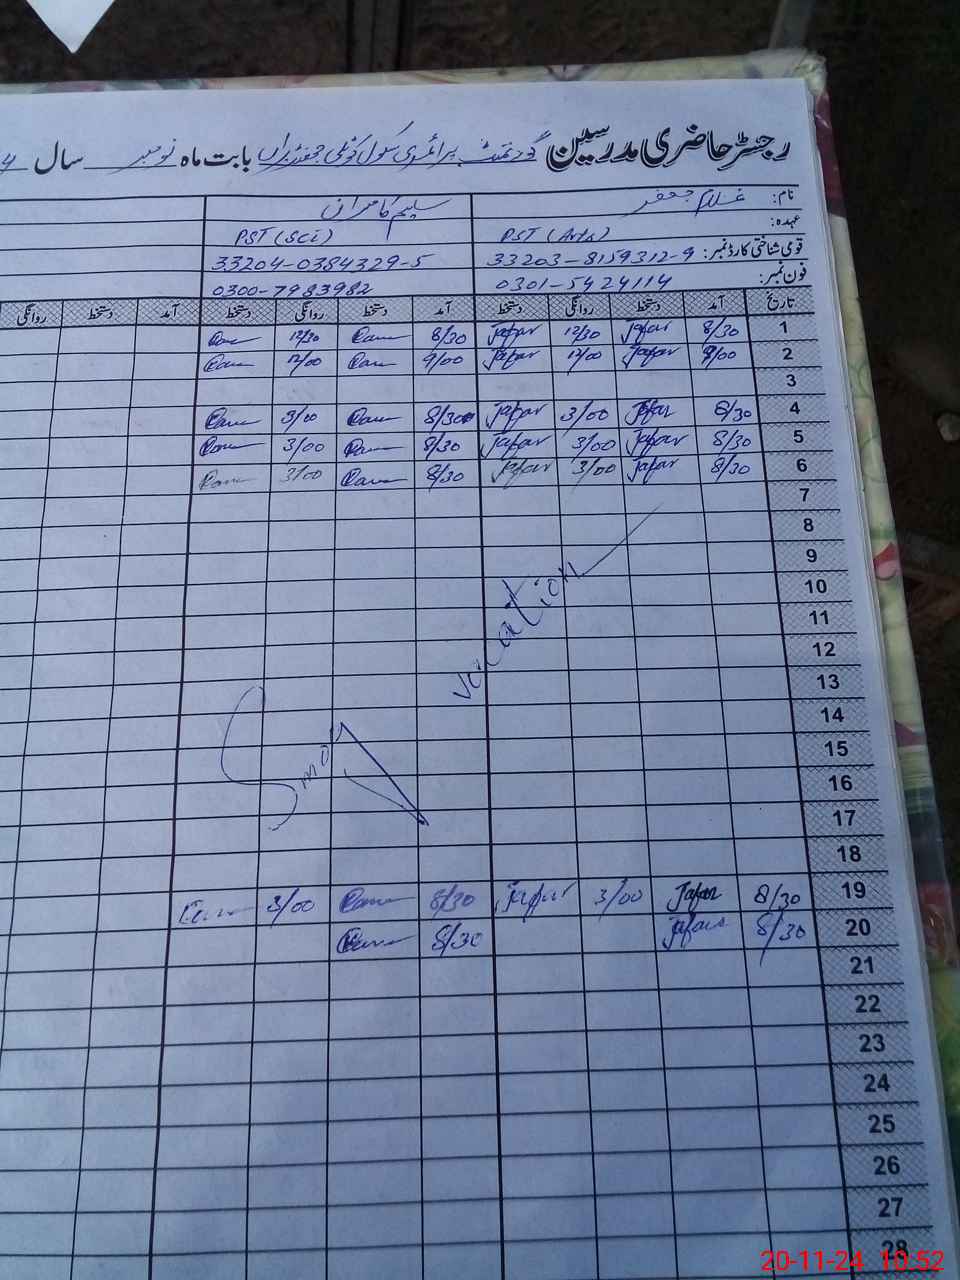 رجسٹر حاضری مدرسین گورنمنٹ پرائمری سکول کوٹلی جعفر بابت ماہ نومبر سال
نام: غلام جعفر سلیم کامران
عہدہ: PST (Arts) PST (Sci)
قومی شناختی کارڈ نمبر: 33203-8159312-9 33204-0384329-5
فون نمبر: 0301-5424114 0300-7983982
تاریخ آمد دستخط روانگی دستخط آمد دستخط روانگی دستخط آمد دستخط روانگی
1 8/30 Jafar 12/30 Jafar 8/30 12/30
2 9/00 Jafar 12/00 Jafar 9/00 12/00
3
4 8/30 Jafar 3/00 Jafar 8/30 3/00
5 8/30 Jafar 3/00 Jafar 8/30 3/00
6 8/30 Jafar 3/00 Jafar 8/30 3/00
7
8
9
10
11
12
13
14
15
16
17
18
Smog vacation
19 8/30 Jafar 3/00 Jafar 8/30 3/00
20 8/30 Jafar 8/30
21
22
23
24
25
26
27
28
20-11-24 10:52